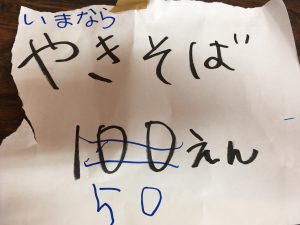 いまなら
やきそば
100えん
50